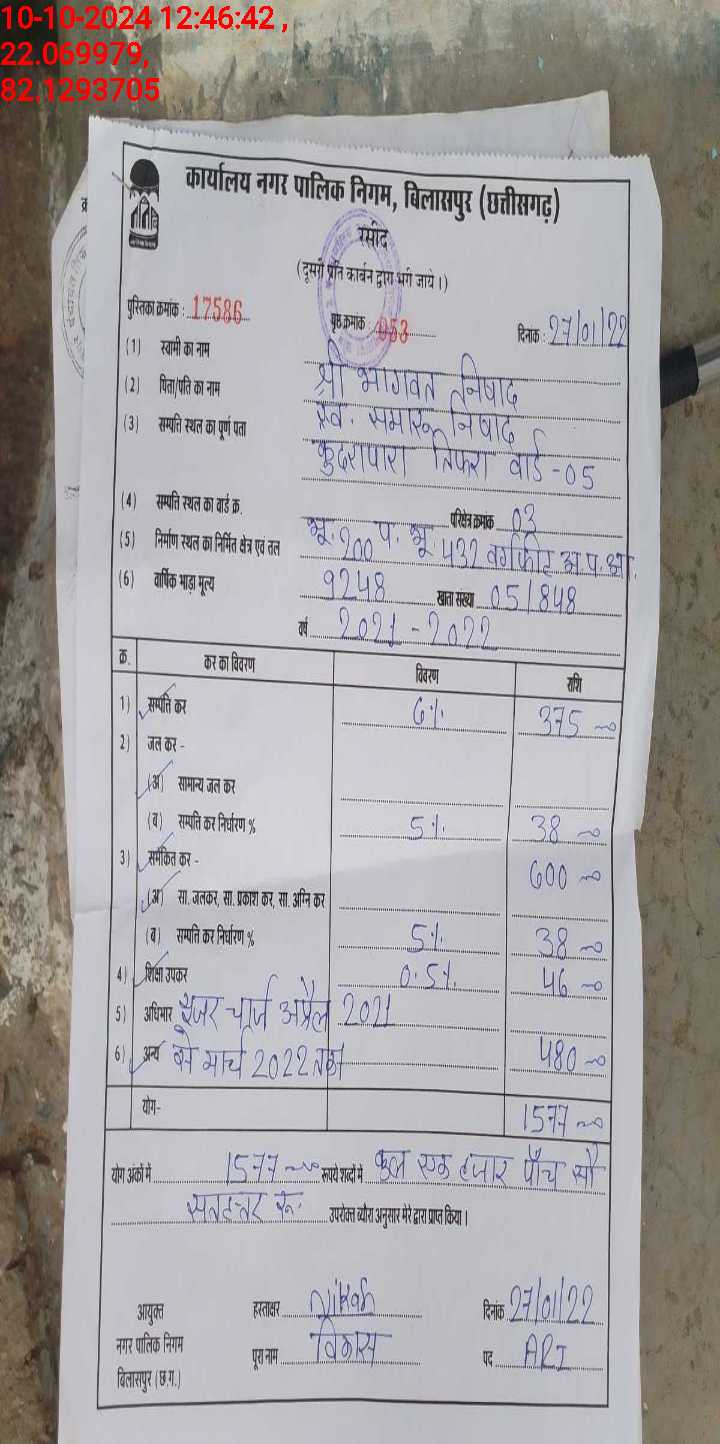 10-10-2024 12:46:42 ,
22.069979,
82.1293705
कार्यालय नगर पालिक निगम, बिलासपुर (छत्तीसगढ़)
रसीद
(दूसरी प्रति कार्बन द्वारा भरी जाये।)
पुस्तिका क्रमांक : 17586 पृष्ठ क्रमांक : 053 दिनांक : 27/01/22
(1) स्वामी का नाम श्री भागवत निषाद
(2) पिता/पति का नाम स्व. समारू निषाद
(3) सम्पति स्थल का पूर्ण पता कुदरापारा तिफरा वार्ड -05
(4) सम्पति स्थल का वार्ड क्र. परिक्षेत्र क्रमांक 03
(5) निर्माण स्थल का निर्मित क्षेत्र एवं तल भू. 200 प. भू 432 वर्गफीट अ.प.आ.
(6) वार्षिक भाड़ा मूल्य 9248 खाता संख्या 051848
वर्ष 2021 - 2022
क्र. कर का विवरण विवरण राशि
1) सम्पति कर 6% 375
2) जल कर -
(अ) सामान्य जल कर
(ब) सम्पति कर निर्धारण % 5% 38
3) समेकित कर - 600
(अ) सा. जलकर, सा. प्रकाश कर, सा. अग्नि कर
(ब) सम्पति कर निर्धारण % 5% 38
4) शिक्षा उपकर 0.5% 46
5) अधिभार यूजर चार्ज अप्रैल 2021
6) अन्य से मार्च 2022 तक 480
योग- 1577
योग अंकों में 1577 रूपये शब्दों में कुल एक हजार पाँच सौ
सतहत्तर रू. उपरोक्त ब्यौरा अनुसार मेरे द्वारा प्राप्त किया।
आयुक्त हस्ताक्षर Vikash दिनांक 27/01/22
नगर पालिक निगम पूरा नाम विकास पद ARI
बिलासपुर (छ.ग.)